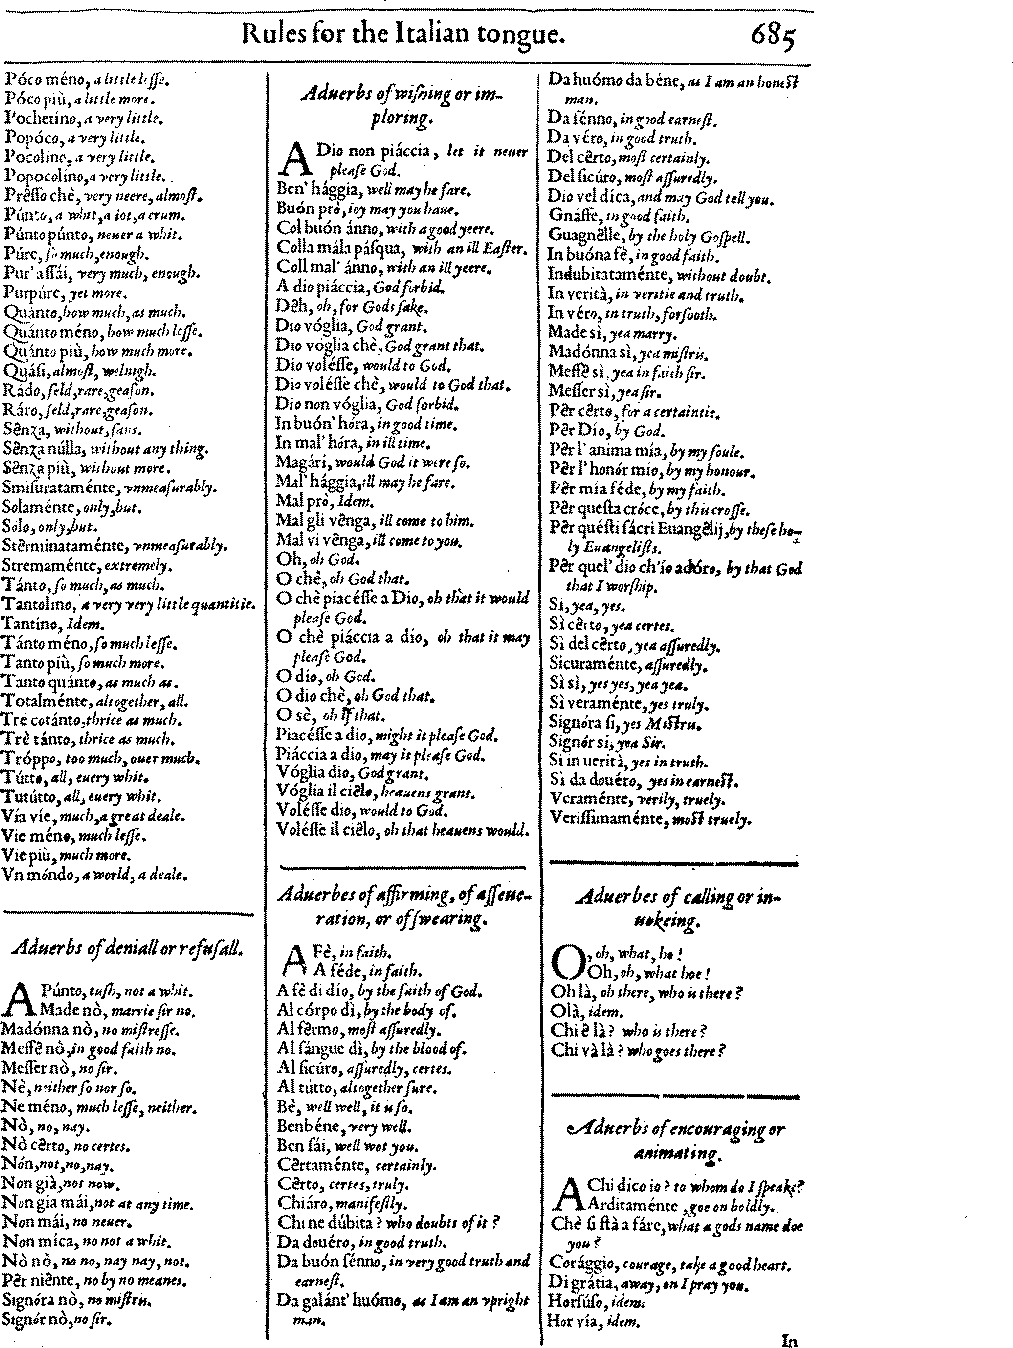 Rules for the Italian tongue. 685
Póco méno, a little lesse.
Póco più, a little more.
Pochetino, a very little.
Popóco, a very little.
Pocolino, a very little.
Popocolino, a very little.
Prêsso chè, very neere, almost.
Púnto, a whit, a iot, a crum.
Púnto púnto, neuer a whit.
Púre, so much, enough.
Pur' assái, very much, enough.
Purpúre, yet more.
Quánto, how much, as much.
Quánto méno, how much lesse.
Quánto più, how much more.
Quási, almost, welnigh.
Rádo, seld, rare, geason.
Ráro, seld, rare, geason.
Sênza, without, sans.
Sênza núlla, without any thing.
Sênza più, without more.
Smisurataménte, vnmeasurably.
Solaménte, only, but.
Solo, only, but.
Stêrminataménte, vnmeasurably.
Stremaménte, extremely.
Tánto, so much, as much.
Tantolino, a very very little quantitie.
Tantino, Idem.
Tánto méno, so much lesse.
Tanto più, so much more.
Tanto quánto, as much as.
Totalménte, altogether, all.
Tre cotánto, thrice as much.
Trè tánto, thrice as much.
Tróppo, too much, ouer much.
Tútto, all, euery whit.
Tutútto, all, euery whit.
Vía vie, much, a great deale.
Vie méno, much lesse.
Vie più, much more.
Vn móndo, a world, a deale.
Aduerbs of deniall or refusall.
A Púnto, tush, not a whit.
Made nò, marrie sir no.
Madónna nò, no mistresse.
Messê nò, in good faith no.
Messer nò, no sir.
Nè, neither so nor so.
Ne méno, much lesse, neither.
Nò, no, nay.
Nò cêrto, no certes.
Nón, not, no, nay.
Non già, not now.
Non gia mái, not at any time.
Non mái, no neuer.
Non míca, no not a whit.
Nò nò, no no, nay nay, not.
Pêr niênte, no by no meanes.
Signóra nò, no mistris.
Signór nò, no sir.
Aduerbs of wishing or im-
ploring.
A Dio non piáccia, let it neuer
please God.
Ben' hággia, well may he fare.
Buón prò, ioy may you haue.
Col buón ánno, with a good yeere.
Colla mála pásqua, with an ill Easter.
Coll mal' ánno, with an ill yeere.
A dio piáccia, God forbid.
Dêh, oh, for Gods sake.
Dio vóglia, God grant.
Dio vóglia chè, God grant that.
Dio volésse, would to God.
Dio volésse chè, would to God that.
Dio non vóglia, God forbid.
In buón' hóra, in good time.
In mal' hóra, in ill time.
Magári, would God it were so.
Mal' hággia, ill may he fare.
Mal prò, Idem.
Mal gli vênga, ill come to him.
Mal vi vênga, ill come to you.
Oh, oh God.
O chè, oh God that.
O chè piacésse a Dio, oh that it would
please God.
O chè piáccia a dio, oh that it may
please God.
O dío, oh God.
O dio chè, oh God that.
O sè, oh if that.
Piacésse a dio, might it please God.
Piáccia a dio, may it please God.
Vóglia dio, God grant.
Vóglia il ciêlo, heauens grant.
Volésse dio, would to God.
Volésse il ciêlo, oh that heauens would.
Aduerbes of affirming, of asseue-
ration, or of swearing.
A Fè, in faith.
A féde, in faith.
A fè di dío, by the faith of God.
Al córpo dì, by the body of.
Al fêrmo, most assuredly.
Al sángue dì, by the blood of.
Al sicúro, assuredly, certes.
Al tútto, altogether sure.
Bè, well well, it is so.
Benbéne, very well.
Ben sái, well wot you.
Cêrtaménte, certainly.
Cêrto, certes, truly.
Chiáro, manifestly.
Chi ne dúbita? who doubts of it?
Da douéro, in good truth.
Da buón sénno, in very good truth and
earnest.
Da galánt' huómo, as I am an vpright
man.
Da huómo da béne, as I am an honest
man.
Da sénno, in good earnest.
Da véro, in good truth.
Del cêrto, most certainly.
Del sicúro, most assuredly.
Dio vel díca, and may God tell you.
Gnáffe, in good faith.
Guagnêlle, by the holy Gospell.
In buóna fè, in good faith.
Indubitataménte, without doubt.
In verità, in veritie and truth.
In véro, in truth, forsooth.
Made sì, yea marry.
Madónna sì, yea mistris.
Messê sì, yea in faith sir.
Messer sì, yea sir.
Pêr cêrto, for a certaintie.
Pêr Dío, by God.
Pêr l' anima mía, by my soule.
Pêr l' honór mío, by my honour.
Pêr mía féde, by my faith.
Pêr questa cróce, by this crosse.
Pêr quésti sácri Euangêlij, by these ho-
ly Euangelists.
Pêr quel' dio ch'io adóro, by that God
that I worship.
Si, yea, yes.
Sì cêrto, yea certes.
Sì del cêrto, yea assuredly.
Sicuraménte, assuredly.
Sì sì, yes yes, yea yea.
Sì veraménte, yes truly.
Signóra si, yes Mistris.
Signór si, yea Sir.
Sì in uerità, yes in truth.
Sì da douéro, yes in earnest.
Veraménte, verily, truely.
Verissimaménte, most truely.
Aduerbes of calling or in-
uokeing.
O, oh, what, ho!
Oh, oh, what hoe!
Oh là, oh there, who is there?
Olà, idem.
Chi ê là? who is there?
Chi và là? who goes there?
Aduerbs of encouraging or
animating.
A Chi dico io? to whom do I speake?
Arditaménte, goe on boldly.
Chè si stà a fáre, what a gods name doe
you?
Corággio, courage, take a good heart.
Di grátia, away, on I pray you.
Horsúso, idem.
Hor vía, idem.
In